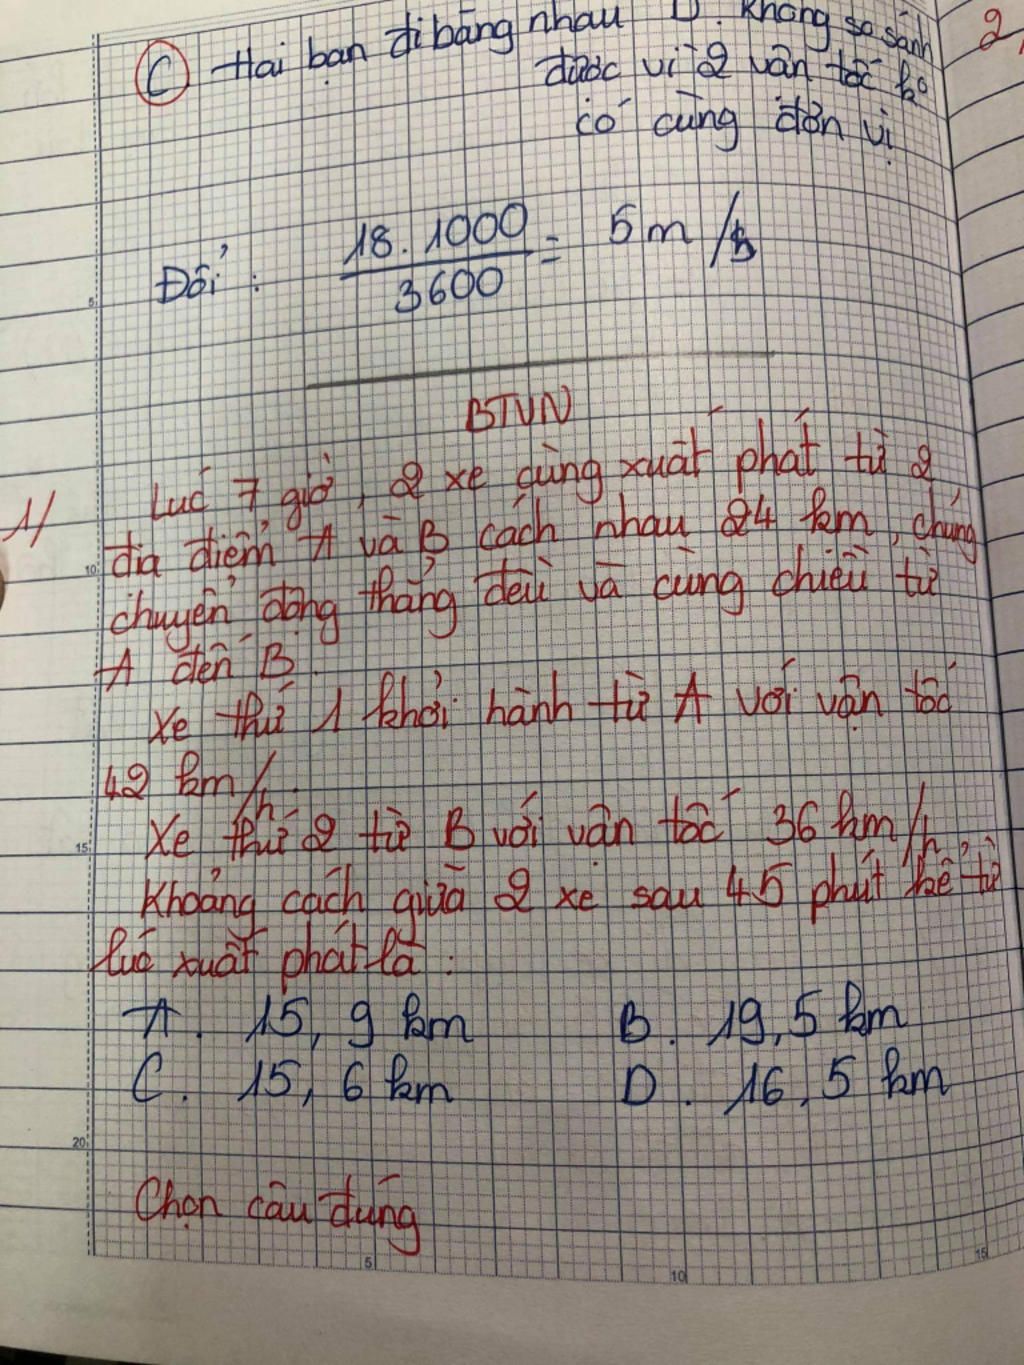 C Hai bạn đi bằng nhau D. Không so sánh
được vì 2 vận tốc ko
có cùng đơn vị
Đổi : 18.1000 / 3600 = 5 m/s
BTVN
1/ Lúc 7 giờ, 2 xe cùng xuất phát từ 2
địa điểm A và B cách nhau 24 km, chúng
chuyển động thẳng đều và cùng chiều từ
A đến B.
Xe thứ 1 khởi hành từ A với vận tốc
42 km/h.
Xe thứ 2 từ B với vận tốc 36 km/h,
Khoảng cách giữa 2 xe sau 45 phút kể từ
lúc xuất phát là :
A. 15,9 km B. 19,5 km
C. 15,6 km D. 16,5 km
Chọn câu đúng
2,
5
10
15
20
5
10
15